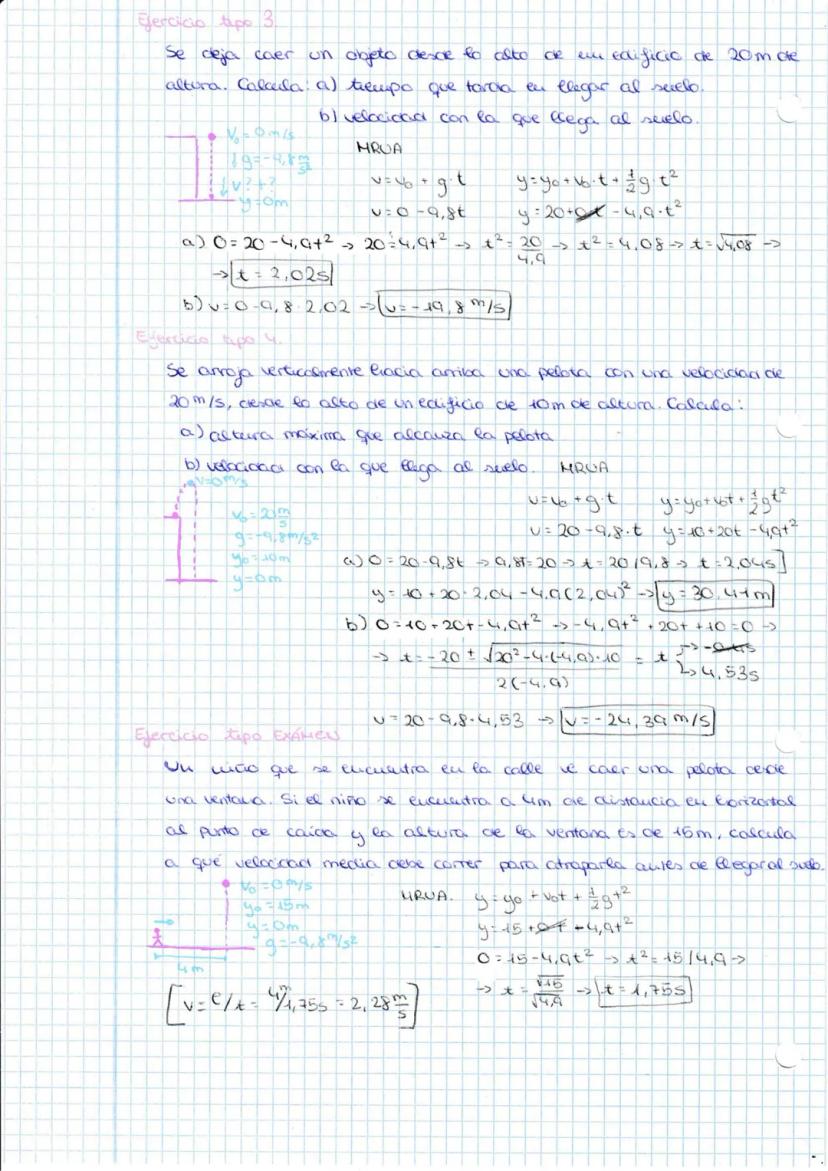 Ejercicio tipo 3.
Se deja caer un objeto desde lo alto de un edificio de 20m de
altura. Calcula: a) tiempo que tarda en llegar al suelo.
b) velocidad con la que llega al suelo.
V₀ = 0m/s
↓g=-9,8 m/s²
↓v? t?
y=0m
MRUA
v=v₀ + g·t
y=y₀+v₀·t+½g·t²
v=0-9,8t
y=20+0t-4,9·t²
a) 0=20-4,9t² → 20=4,9t² → t²=20/4,9 → t²=4,08 → t=√4,08 →
→ t=2,02s
b) v=0-9,8·2,02 → v=-19,8 m/s
Ejercicio tipo 4.
Se arroja verticalmente hacia arriba una pelota con una velocidad de
20m/s, desde lo alto de un edificio de 10m de altura. Calcula:
a) altura máxima que alcanza la pelota
b) velocidad con la que llega al suelo. MRUA
v=0m/s
v₀=20 m/s
g=-9,8m/s²
y₀=10m
y=0m
v=v₀+g·t
y=y₀+v₀t+½gt²
v=20-9,8·t
y=10+20t-4,9t²
a) 0=20-9,8t → 9,8t=20 → t=20/9,8 → t=2,04s]
y=10+20·2,04-4,9(2,04)² → y=30,41m
b) 0=10+20t-4,9t² → -4,9t²+20t+10=0 →
→ t=-20±√20²-4·(-4,9)·10 / 2(-4,9) = t
→ 4,53s
v=20-9,8·4,53 → v=-24,39m/s
Ejercicio tipo EXÁMEN
Un niño que se encuentra en la calle ve caer una pelota desde
una ventana. Si el niño se encuentra a 4m de distancia en horizontal
al punto de caída y la altura de la ventana es de 15m, calcula
a qué velocidad media debe correr para atraparla antes de llegar al suelo.
V₀=0m/s
y₀=15m
y=0m
g=-9,8m/s²
4m
MRUA. y=y₀+v₀t+½gt²
y=15+0t-4,9t²
0=15-4,9t² → t²=15/4,9 →
→ t=√15/√4,9 → t=1,75s
[v=e/t=4m/1,75s=2,28 m/s]